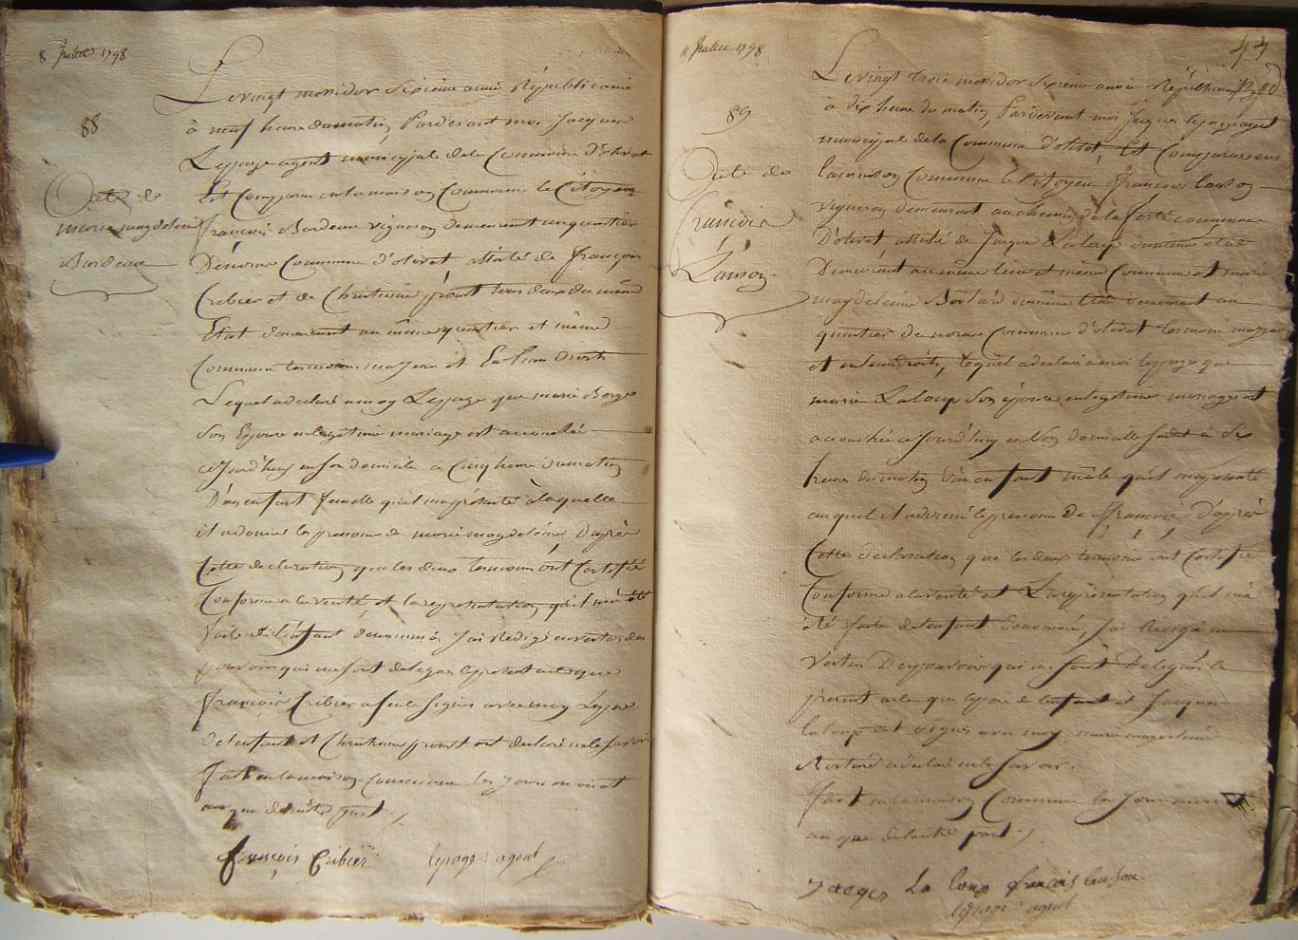 8 Juillet 1798
88
Acte de
marie magdeleine
Bordeau
Le vingt mesidor Sixieme année Républicaine
à neuf heure du matin, Pardevant moi Jacques
Lepage agent municipale de la Commune D'olivet
Est Comparu en la maison Commune le Citoyen
françois Bordeau vigneron demeurant au quartier
Commune d'olivet assisté de françois
Cribier et de Christienne prout tous deux du même
Etat demeurant au même quartier et même
Commune temoins majeur et
Lequel a declaré a moy Lepage que marie
Son Epouse en legitime mariage est accouchée
ce Jourd'huy en Son domicile a Cinq heure du matin
D'un enfant femelle qu'il m'a presenté à laquelle
il a donné les prenoms de marie magdeleine D'après
Cette declaration que les deux temoins ont Certifié
Conforme a la verité et la representation qu'il m'a été
faite de L'enfant denommé, J'ai Redigé en vertu des
pouvoirs qui me sont delegués le present acte que
françois Cribier a seul Signé avec moy Lepage
de l'enfant et Christienne prout ont declaré ne le savoir
fait en la maison Commune les Jours mois et
an que de l'autre part
françois Cribier lepage agent
11 Juillet 1798
44
89
Acte de
françois
Lanson
Le vingt trois mesidor Sixieme année Républicaine
à dix heure du matin, Pardevant moi Jacques Lepage agent
municipal de la Commune d'olivet, Est Comparu en
la maison Commune le Citoyen françois Lanson
vigneron demeurant au chemin de la ferté commune
D'olivet assisté de Jacque Laloup du même état
Demeurant au même lieu et même Commune et marie
magdeleine demeurant au
quartier de Commune d'olivet temoins majeur
et, lequel a declaré a moi lepage que
marie Laloup Son épouse en legitime mariage est
accouchée ce Jourd'huy en Son domicile à Six
heure du matin D'un enfant mâle qu'il m'a presenté
auquel il a donné le prenom de françois D'après
Cette declaration que les deux temoins ont Certifié
Conforme a la verité et La representation qu'il m'a
été faite de l'enfant denommé, J'ai Redigé en
vertu Des pouvoirs qui me sont Delegués le
present acte que le pere de l'enfant et Jacques
laloup ont Signés avec moy, marie magdeleine
a declaré ne le Savoir.
fait en la maison Commune les Jour mois
an que de l'autre part
Jacques La loup françois lanson
lepage agent